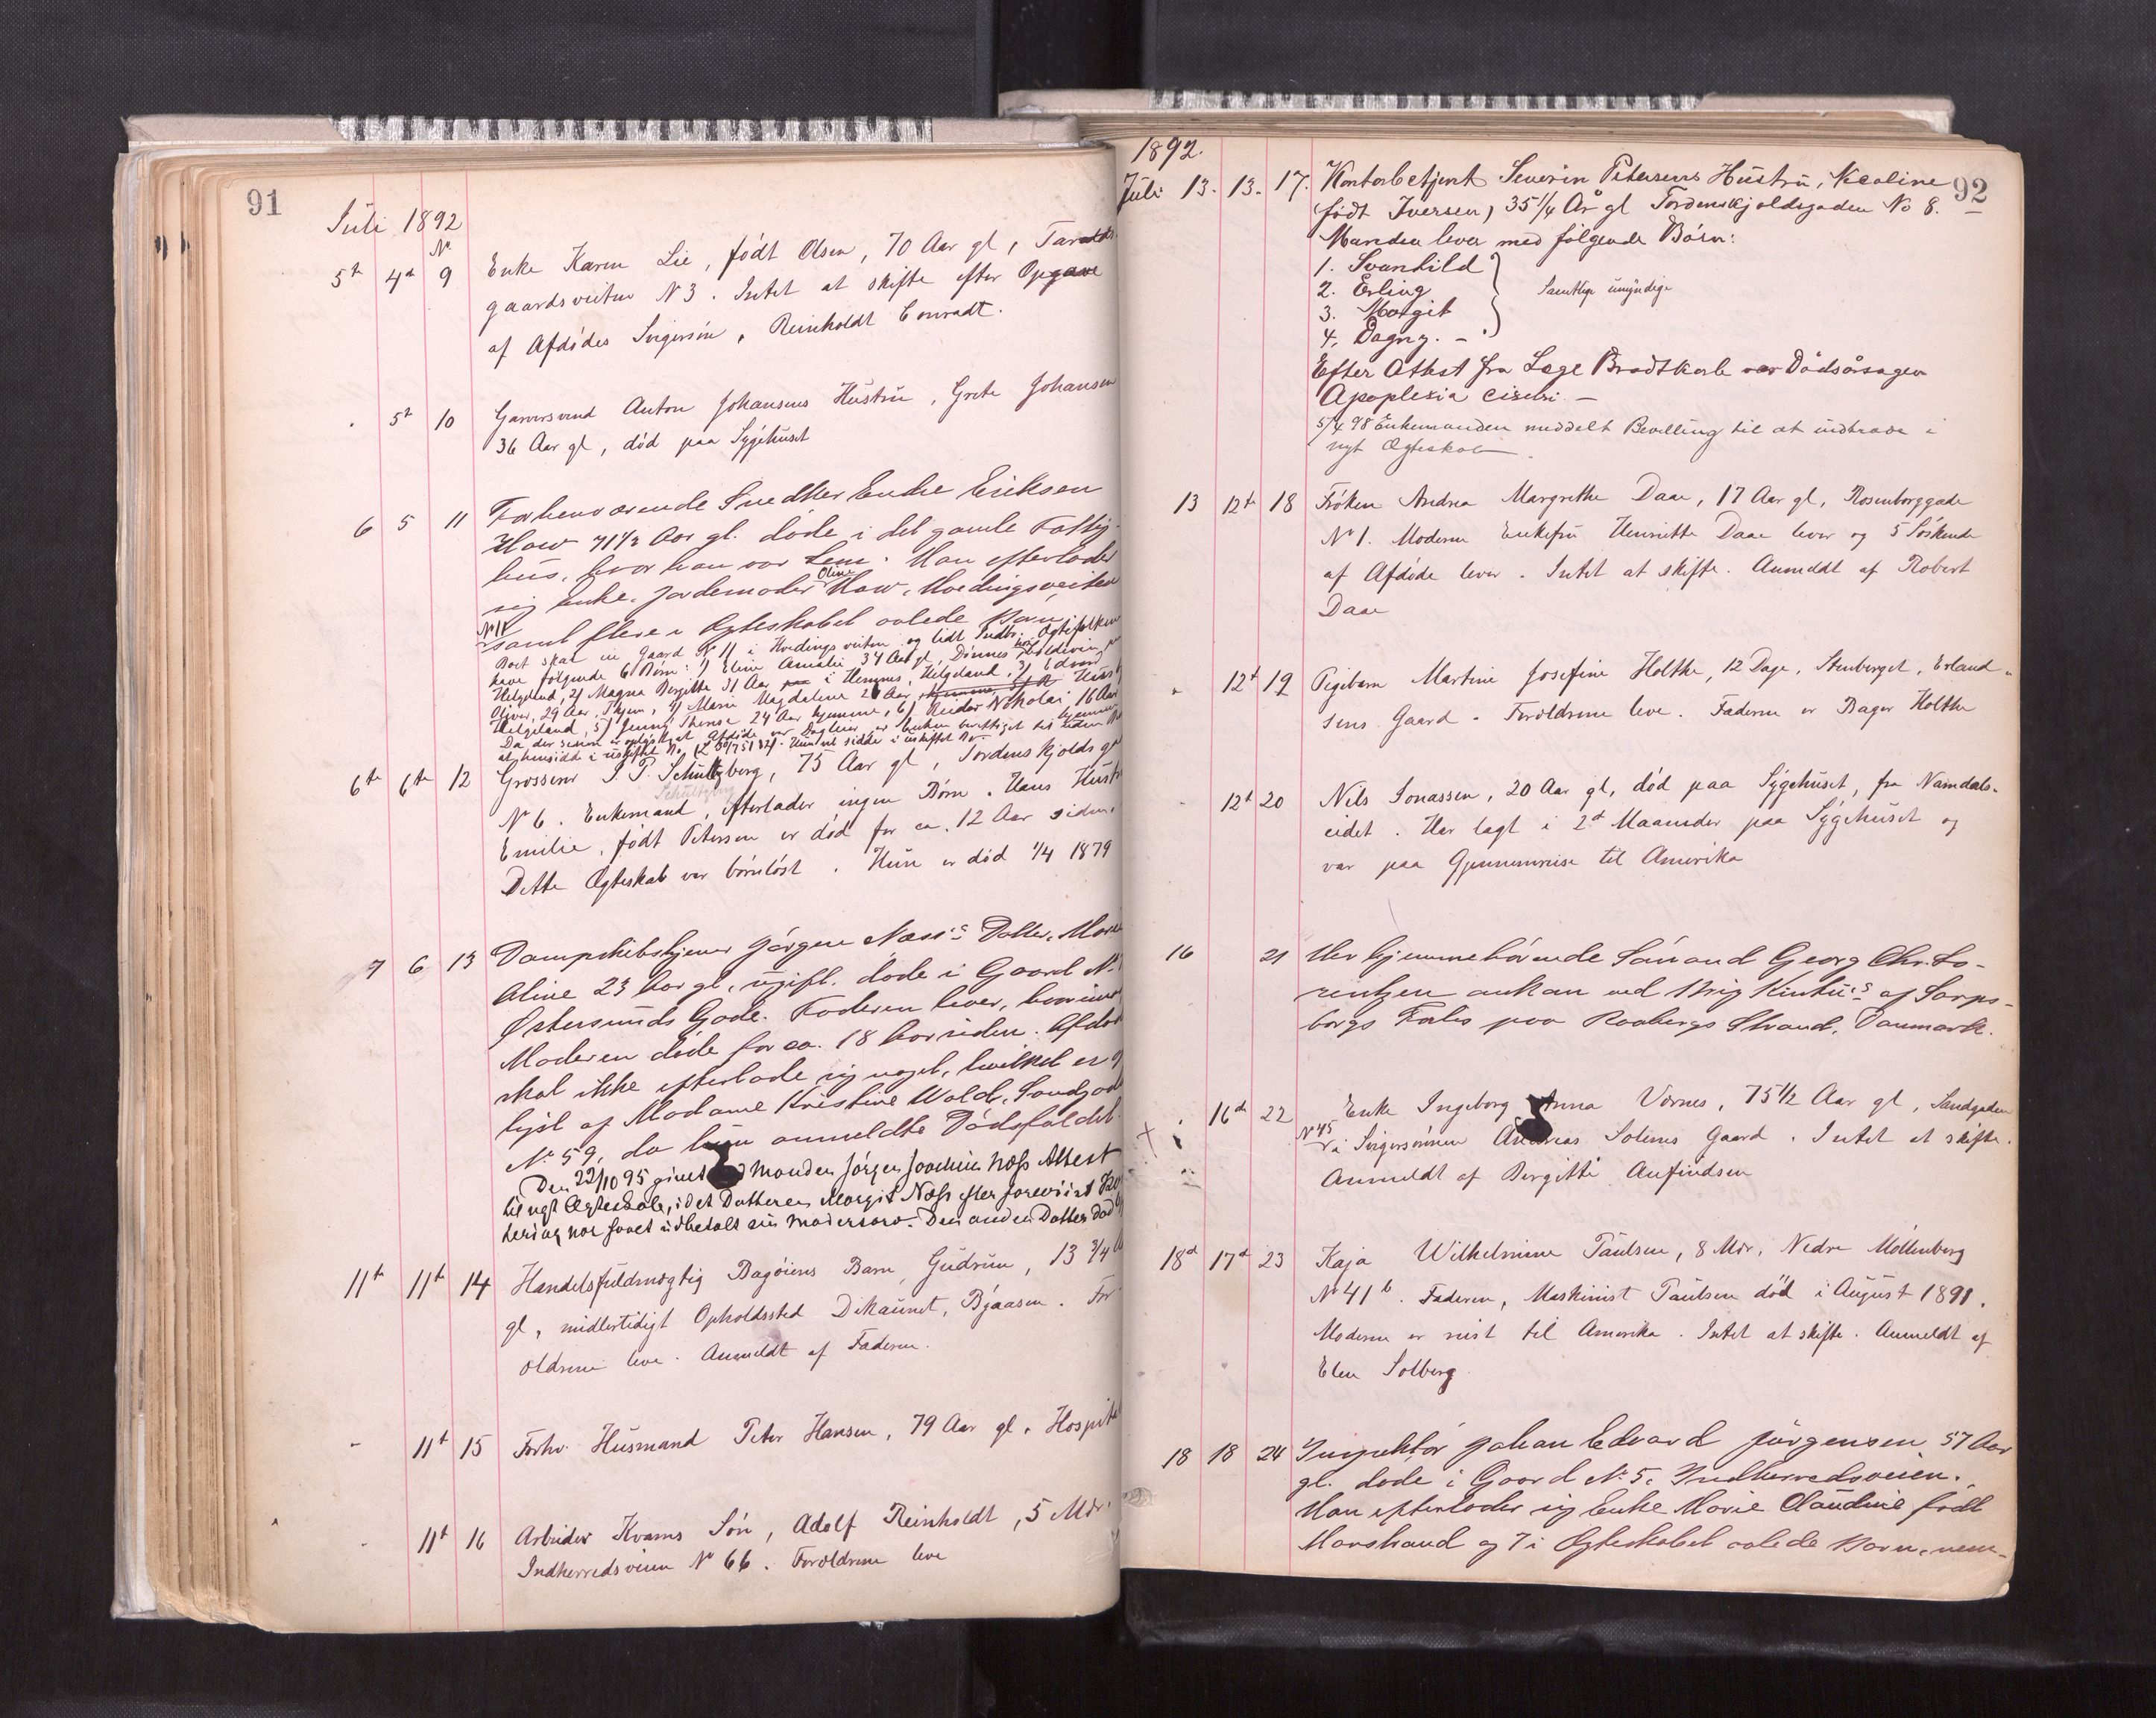 91
Juli 1892
No
5te 4de 9 Enke Karen Lie, født Olsen, 70 Aar gl, Taralds-
gaardsveiten N 3. Intet at skifte efter Opgave
af Afdødes Svigersøn, Reinholdt Conradt.
5te 10 Garversvend Anton Johansens Hustru, Grete Johansen
36 Aar gl, død paa Sygehuset
6 5 11 Forhenværende Snedker Endre Eriksen
How 71 1/2 Aar gl. døde i det gamle Fattig-
hus, hvor han var Lem. Han efterlader
Oline
sig Enke, Jordemoder How, Hvedingsveiten
No 11
samt flere i Ægteskabet avlede Børn
Boet skal eie Gaard No 11 i Hvedingsveiten og lidt Indbo. Ægtefolkene
have følgende 6 Børn: 1) Eline Amalie 34 Aar gl, Dønnes
Helgeland, 2) Magna Bergitte 31 Aar i Hemnes, Helgeland, 3) Edvard
Oliver, 29 Aar, Thjem, 4) Marie Magdalene 26 Aar
Helgeland, 5) Jenny Therese 24 Aar hjemme, 6) Reidar Nikolai, 16 Aar
hjemme
6te 6te 12 Grosserer P. Schultzberg, 75 Aar gl, Tordenskjolds g
Schultzberg
No 6. Enkemand, efterlader ingen Børn. Hans Hustru
Emilie, født Petersen er død for ca. 12 Aar siden.
Dette Ægteskab var børnløst. Hun er død 1/4 1879
7 6 13 Dampskibskjener Jørgen Næss's Datter, Marie
Aline 23 Aar gl, ugift, døde i Gaard No
Østersunds Gade. Faderen lever, hvorimod
Moderen døde for ca. 18 Aar siden. Afdøde
skal ikke efterlade sig noget, hvilket er op-
lyst af Madame Kristine Wold, Sandgaden
No 59, da hun anmeldte Dødsfaldet.
Den 22/10 95 givet Manden Jørgen Joachim Næss Attest
til nyt Ægteskab, idet Datteren Margit Næss efter forevist
har faaet udbetalt sin Mødrearv. Den anden Datter død
11te 11te 14 Handelsfuldmægtig Bagøiens Barn, Gudrun, 13 3/4
gl, midlertidigt Opholdssted Dikaunet, Byaasen. For-
ældrene leve. Anmeldt af Faderen.
- 11te 15 Forhv. Husmand Peter Hansen, 79 Aar gl, Hospital
11te 16 Arbeider Kvams Søn, Adolf Reinholdt, 5 Mdr.
Indherredsveien No 66. Forældrene leve
92
1892.
Juli 13. 13. 17. Kontorbetjent Severin Petersens Hustru, Nicoline
(født Iversen) 35 1/4 År gl Tordenskjoldsgaden No 8.
Manden lever med følgende Børn:
1. Svanhild
2. Erling
Samtlige umyndige
3. Margit
4. Dagny. -
Efter Attest fra Læge Brodtkorb var Dødsårsagen
Apoplexia cerebri. -
5/4 98 Enkemanden meddelt Bevilling til at indtræde i
nyt Ægteskab.
13 12te 18 Frøken Andrea Margrethe Daae, 17 Aar gl, Rosenborggade
No 1. Moderen Enkefru Henriette Daae lever og 5 Søskende
af Afdøde lever. Intet at skifte. Anmeldt af Robert
Daae
" 12te 19 Pigebarn Martine Josefine Holthe, 12 Dage, Stenberget, Erland-
sens Gaard. Forældrene leve. Faderen er Bager Holthe
- 12te 20 Nils Jonassen, 20 Aar gl, død paa Sygehuset, fra Namdals-
eidet. Har lagt i 2de Maaneder paa Sygehuset og
var paa Gjennemreise til Amerika
16 21 Her hjemmehørende Sømand Georg Chr. Lo-
rentzen omkom ved Brig Kintu's af Sarps-
borgs Forlis paa Raabergs Strand, Danmark.
16de 22 Enke Ingeborg Anna Værnes, 75 1/2 Aar gl, Sandgaden
No 45
i Svigersønnen Andreas Solems Gaard. Intet at skifte.
Anmeldt af Bergitte Anfindsen
18de 17de 23 Kaja Wilhelmine Paulsen, 8 Mdr, Nedre Møllenberg
No 41 b. Faderen, Maskinist Paulsen død i August 1891.
Moderen er reist til Amerika. Intet at skifte. Anmeldt af
Elen Solberg
18 18 24 Inspektør Johan Edvard Jørgensen 57 Aar
gl. døde i Gaard No 5, Indherredsveien.
Han efterlader sig Enke Marie Claudine født
Marstrand og 7 i Ægteskabet avlede Børn, nem-